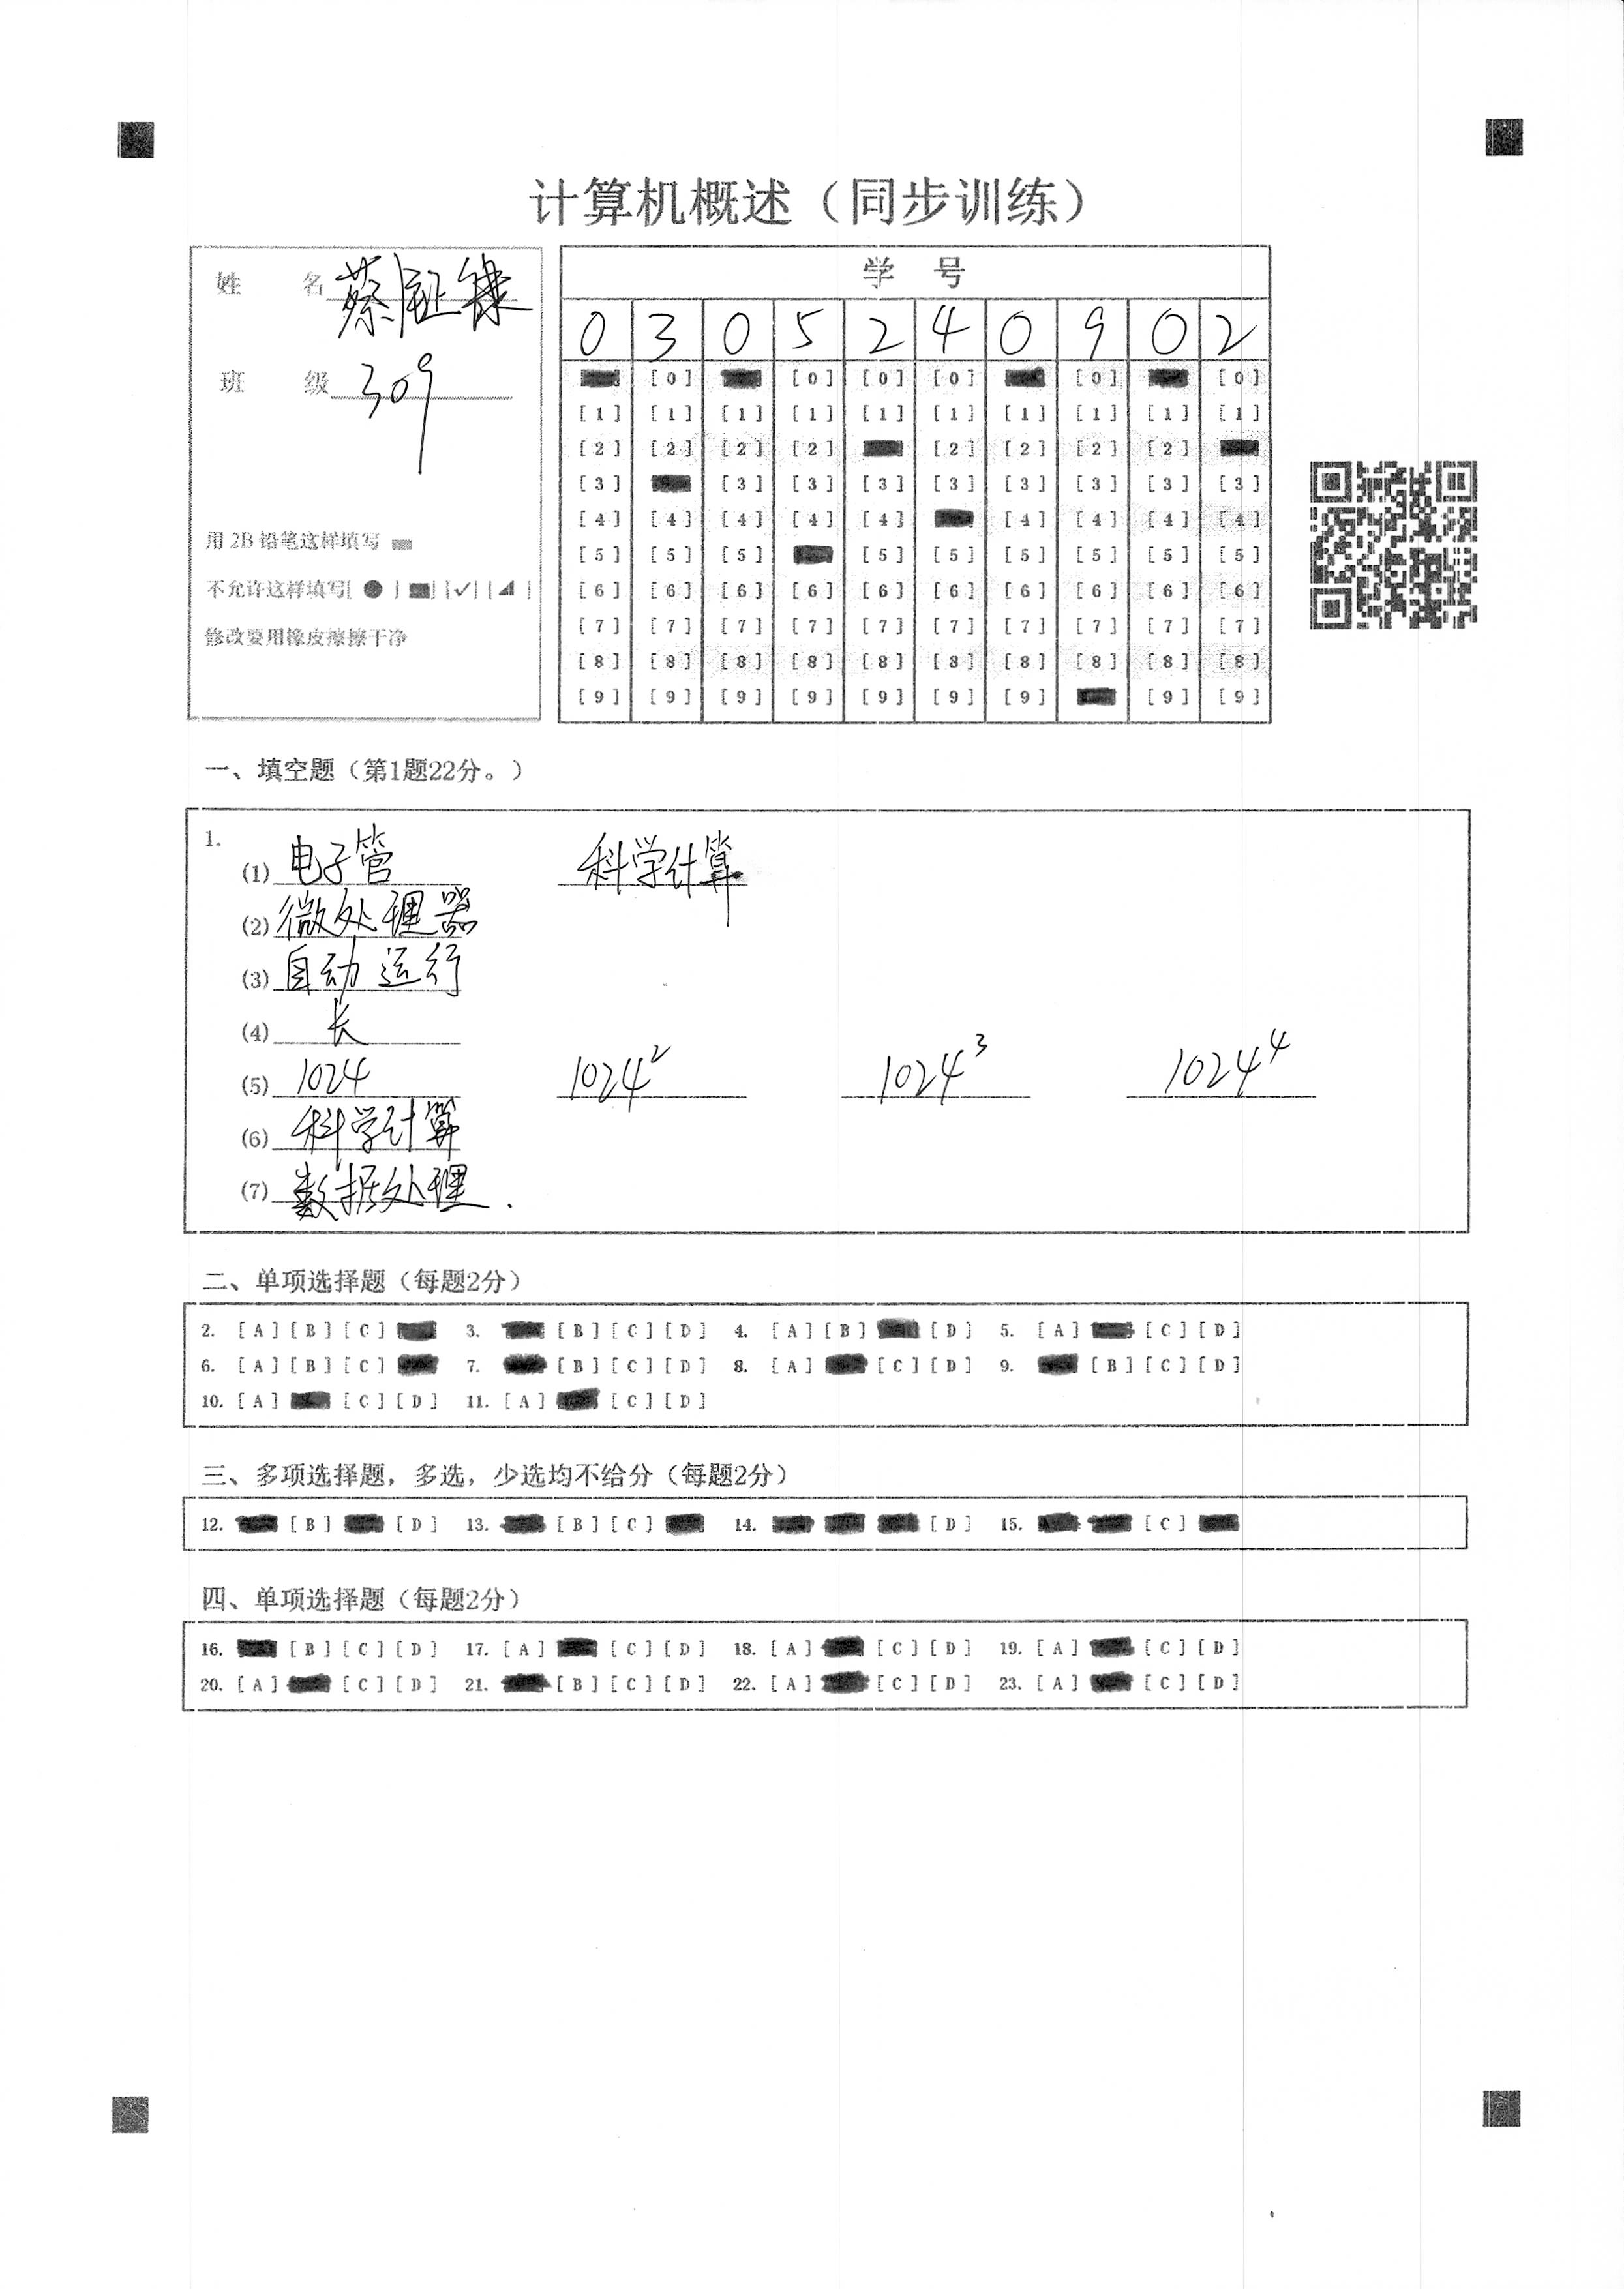 计算机概述（同步训练）
姓 名 蔡
班 级 309
用 2B 铅笔这样填写
不允许这样填写[ ● ] [ ■ ] [ ✓ ] [ ◢ ]
修改要用橡皮擦擦干净
学 号
0 3 0 5 2 4 0 9 0 2
[0] [0] [0] [0] [0] [0]
[1] [1] [1] [1] [1] [1] [1] [1] [1] [1]
[2] [2] [2] [2] [2] [2] [2] [2]
[3] [3] [3] [3] [3] [3] [3] [3] [3]
[4] [4] [4] [4] [4] [4] [4] [4] [4]
[5] [5] [5] [5] [5] [5] [5] [5] [5]
[6] [6] [6] [6] [6] [6] [6] [6] [6] [6]
[7] [7] [7] [7] [7] [7] [7] [7] [7] [7]
[8] [8] [8] [8] [8] [8] [8] [8] [8] [8]
[9] [9] [9] [9] [9] [9] [9] [9] [9]
一、填空题（第1题22分。）
1.
(1) 电子管 科学计算
(2) 微处理器
(3) 自动运行
(4) 长
(5) 1024 1024² 1024³ 1024⁴
(6) 科学计算
(7) 数据处理.
二、单项选择题（每题2分）
2. [A] [B] [C] 3. [B] [C] [D] 4. [A] [B] [D] 5. [A] [C] [D]
6. [A] [B] [C] 7. [B] [C] [D] 8. [A] [C] [D] 9. [B] [C] [D]
10. [A] [C] [D] 11. [A] [C] [D]
三、多项选择题，多选，少选均不给分（每题2分）
12. [B] [D] 13. [B] [C] 14. [D] 15. [C]
四、单项选择题（每题2分）
16. [B] [C] [D] 17. [A] [C] [D] 18. [A] [C] [D] 19. [A] [C] [D]
20. [A] [C] [D] 21. [B] [C] [D] 22. [A] [C] [D] 23. [A] [C] [D]